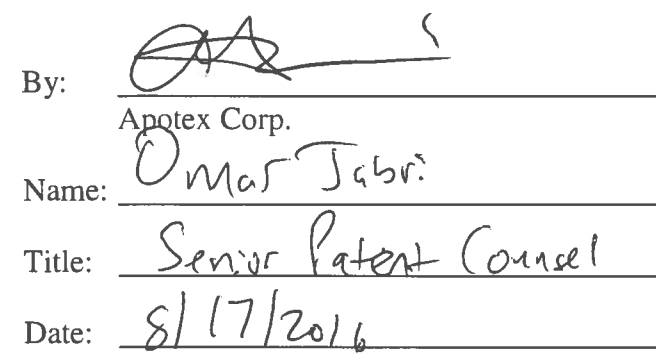 By:
Apotex Corp.
Name: Omar Jabri
Title: Senior Patent Counsel
Date: 8/17/2016